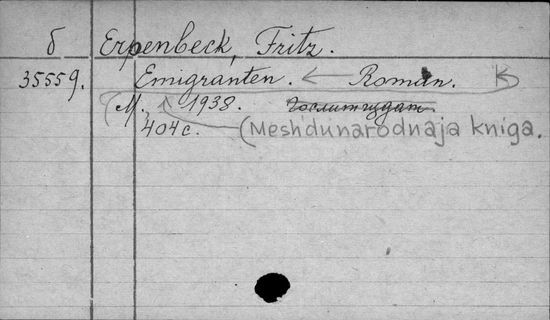 б Erpenbeck, Fritz.
35559. Emigranten. ← Roman.
M., 1938. Гослитиздат
404 с. (Meshdunarodnaja kniga.